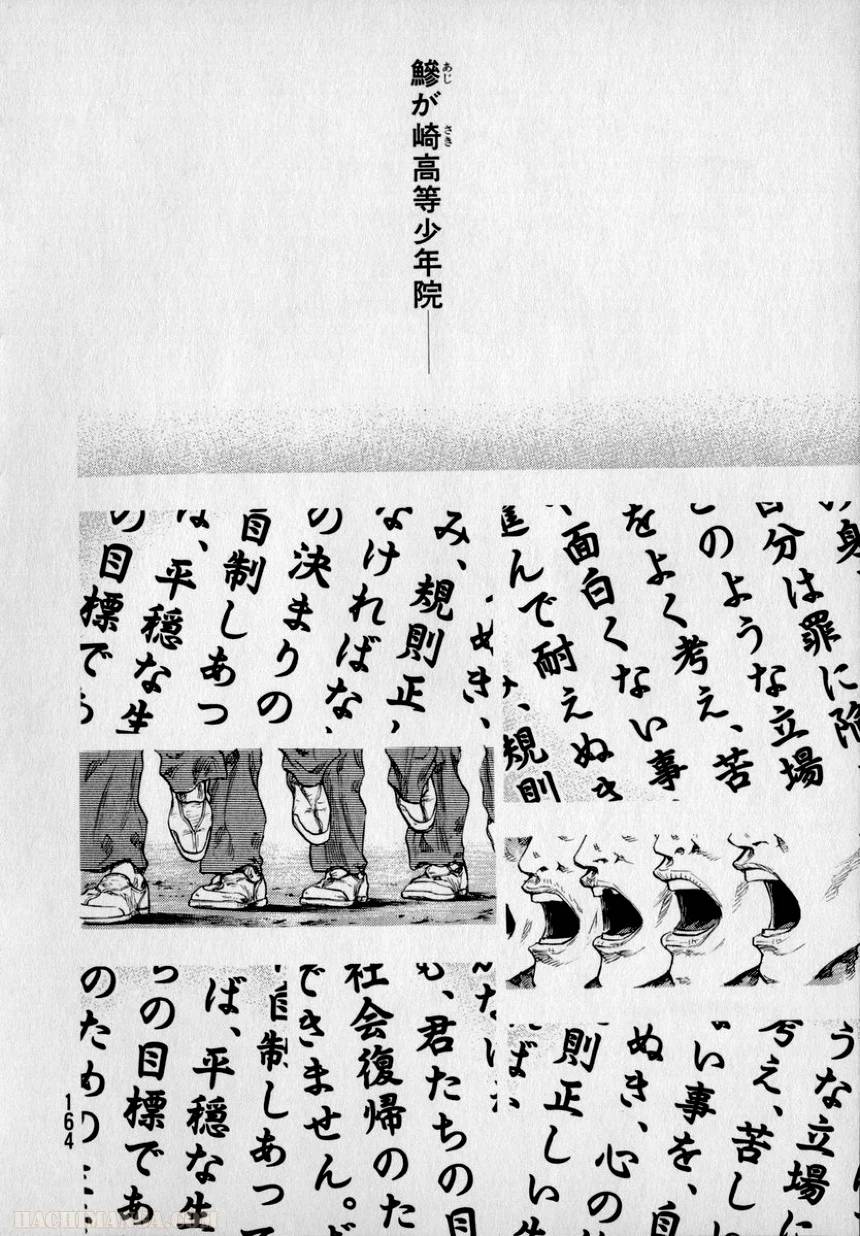 鰺が崎高等少年院――
あじ
さき
の身
自分は罪に陥
このような立場
をよく考え、苦
、面白くない事
進んで耐えぬき
み、規則
ぬき、
み、規則正
なければな
の決まりの
自制しあっ
ば、平穏な生
の目標で
うな立場
考え、苦しい
い事を、自
ぬき、心の
則正しい生
れば
んなは
も、君たちの目
社会復帰のた
できません。ど
自制しあって
ば、平穏な生
の目標であ
のための
164